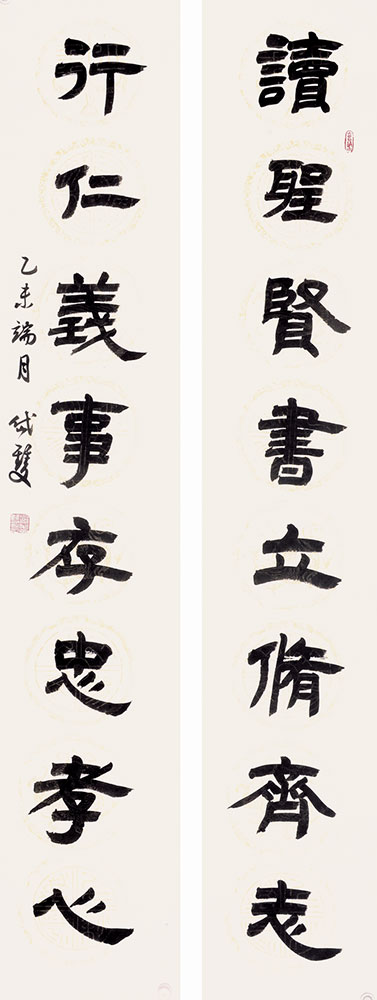 讀聖賢書立脩齊志
行仁義事存忠孝心
乙未端月